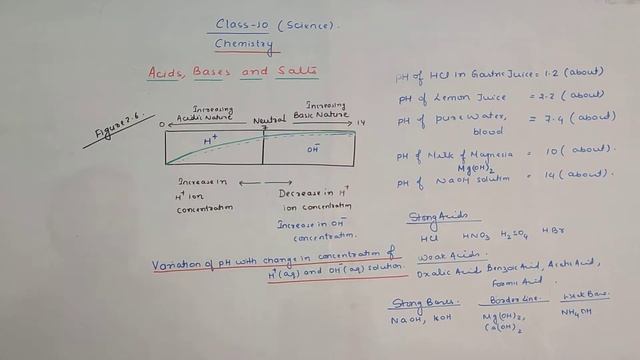 Class-10 (Science).
Chemistry
Acids, Bases and Salts
Figure 2.6.
Increasing Acidic Nature
Neutral
Increasing Basic Nature
0
7
14
H⁺
OH⁻
Increase in
H⁺ ion
concentration
Decrease in H⁺
ion concentration
Increase in OH⁻
concentration.
Variation of pH with change in concentration of
H⁺(aq) and OH⁻(aq) solution.
PH of HCl in Gastric Juice = 1.2 (about)
PH of Lemon Juice = 2.2 (about)
PH of pure water, blood = 7.4 (about)
PH of Milk of Magnesia = 10 (about).
Mg(OH)₂
PH of NaOH solution = 14 (about).
Strong Acids
HCl HNO₃ H₂SO₄ HBr
Weak Acids.
Oxalic Acid, Benzoic Acid, Acetic Acid,
Formic Acid.
Strong Bases.
NaOH, KOH
Border Line.
Mg(OH)₂,
Ca(OH)₂
Weak Base.
NH₄OH